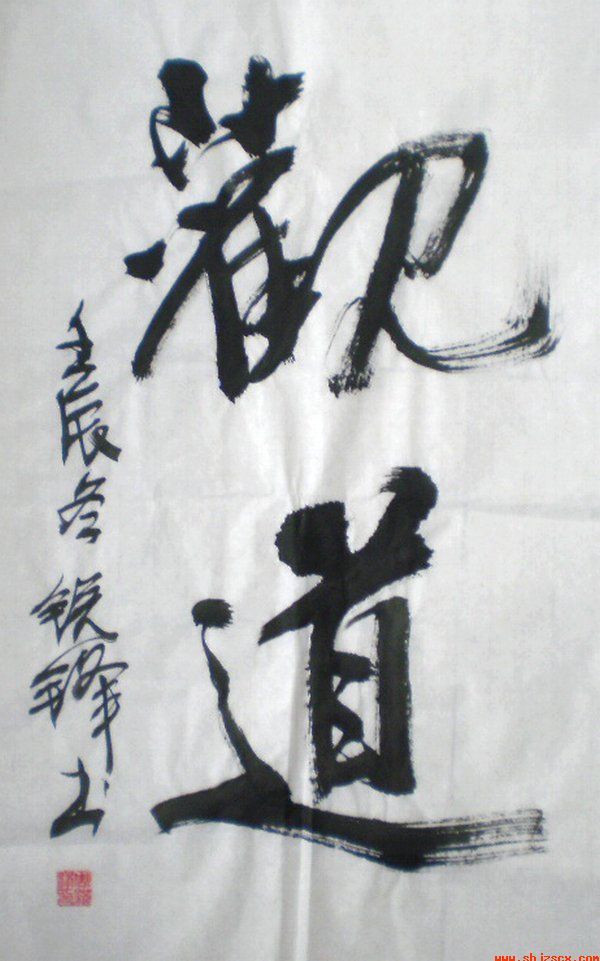 觀道
壬辰冬 锐锋书
www.shjzscx.com